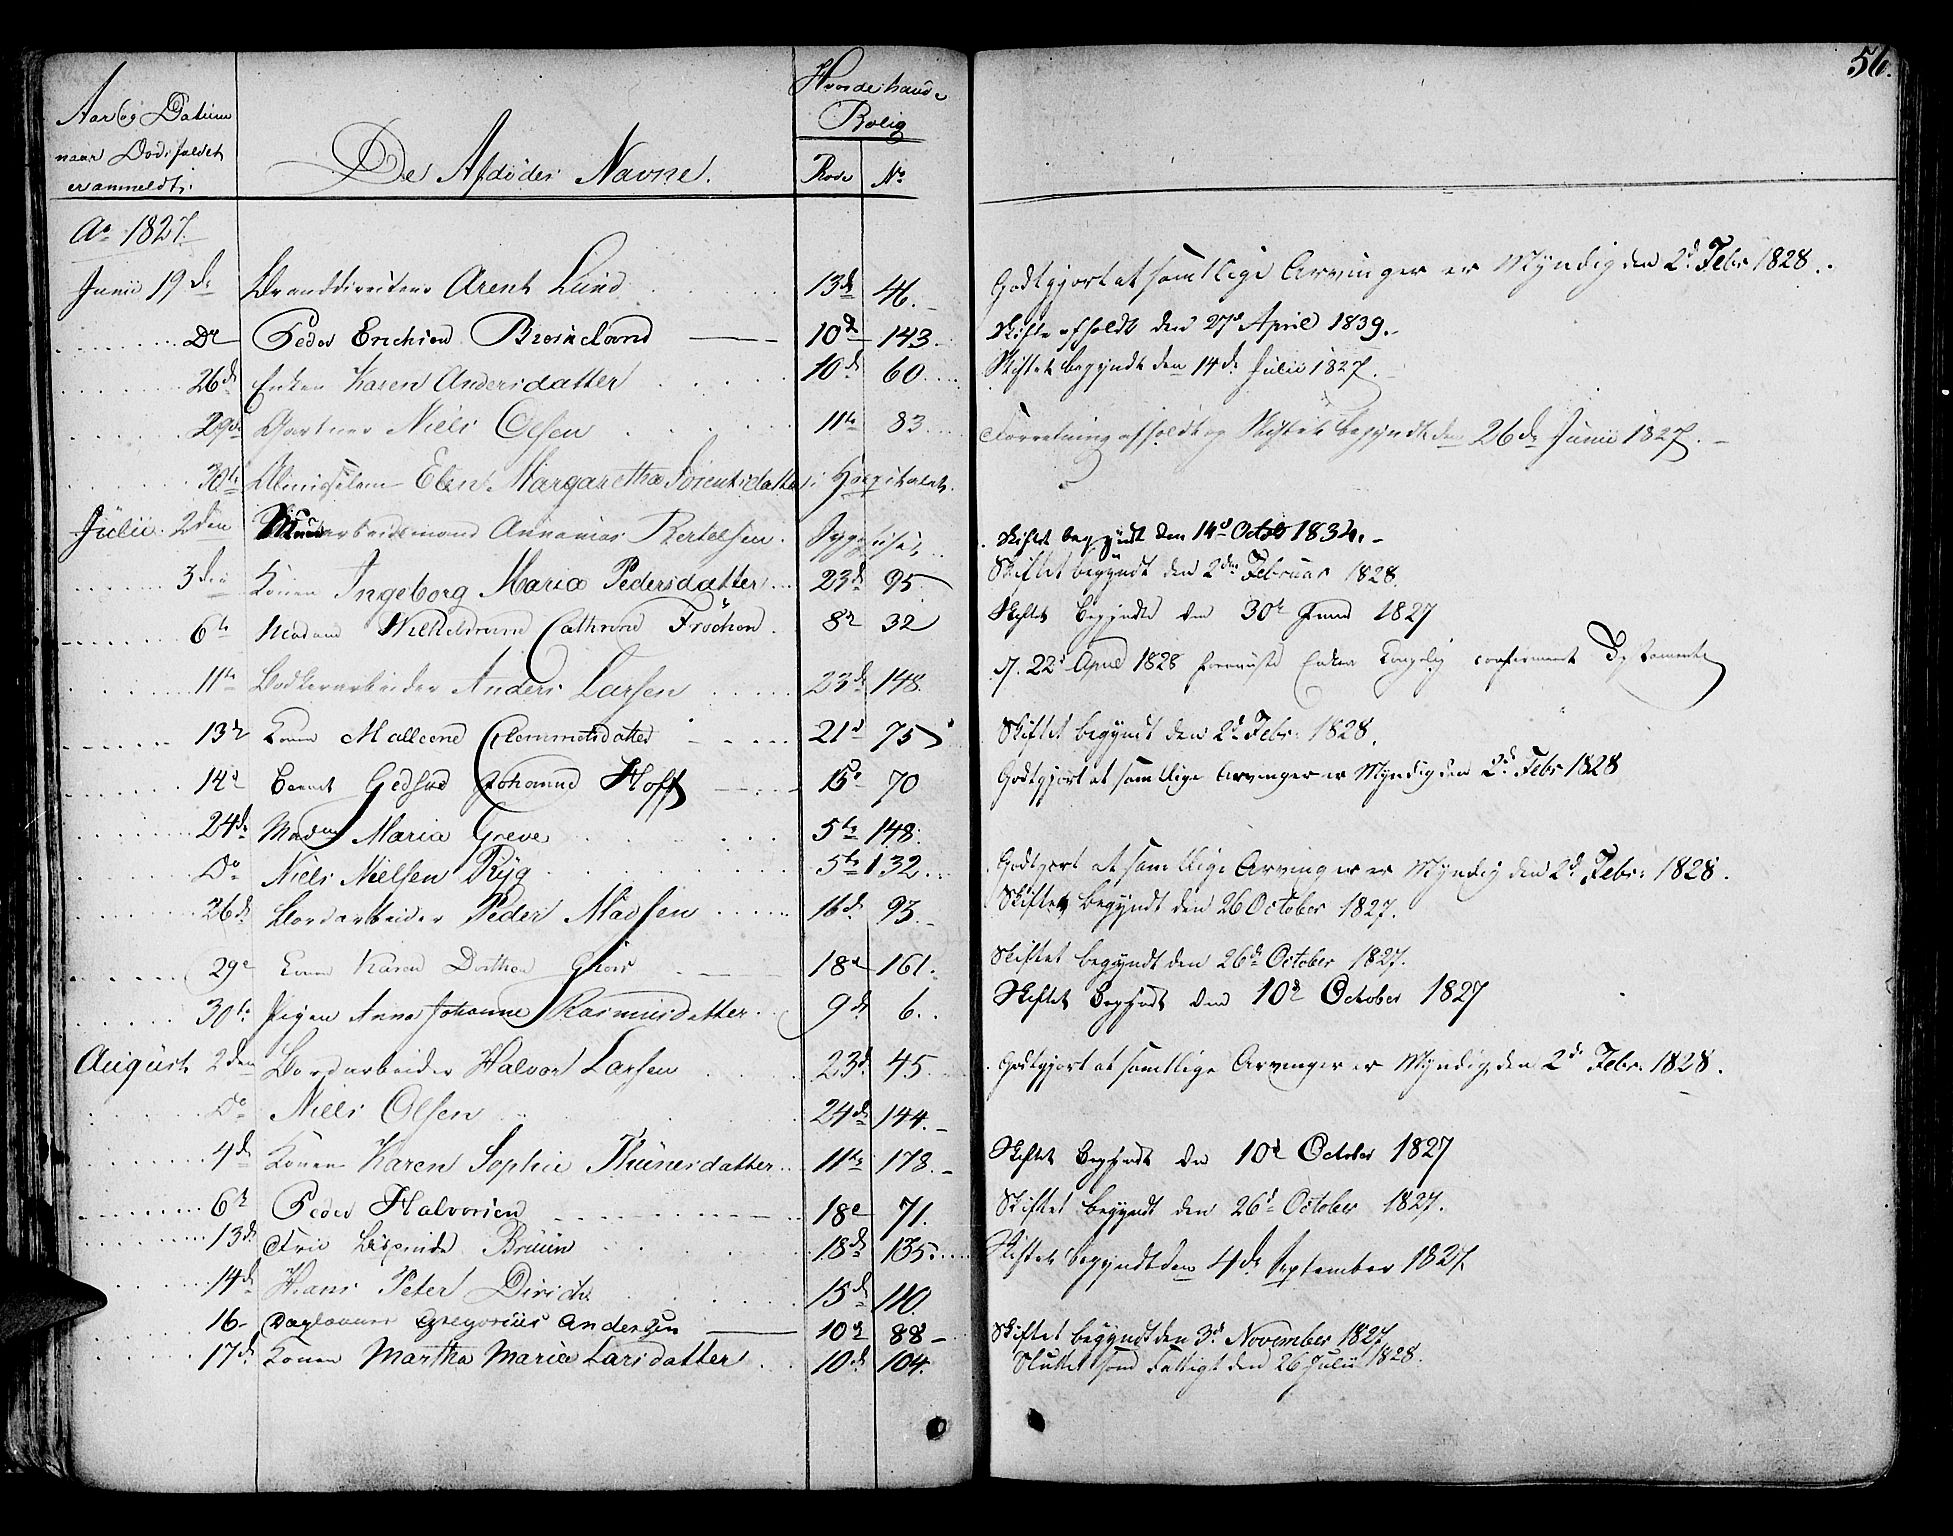 56.
Aar og Datum
naar Dødsfaldet
er anmeldt.
De Afdødes Navne.
Hvor de havde
Bolig
Rode No
Ao 1827.
Junii 19de Branddirecteur Arent Lund 13de 46. Godtgjort at samtlige Arvinger er Myndig den 2d Febr 1828.
Do Peder Erichsen 10d 143. Skifte afholdt den 27d April 1839.
26de Enken Karen Andersdatter 10de 60. Skiftet begyndt den 14de Julii 1827.
29de Gartner Niels Olsen 11te 83. Forretning afholdt og Skiftet begyndt den 26de Junii 1827.
30te Almisselem Elen Margaretha Sørensdatter i Hospitalet.
Julii 2den Arbeidsmand Annanias Bertelsen. Sygehuset. Skiftet begyndt den 14d Octob 1834.
3die Konen Ingeborg Maria Pedersdatter 23de 95 Skiftet begyndt den 2den Februar 1828.
6te Madam Cathrine 8de 32 Skiftet begyndte den 30te Juni 1827
11te Bødkerarbeider Anders Larsen 23de 148. d. 22d April 1828 foreviiste Enken Kongelig confirmeret Testamente
13de Kone Malleene Clemmetsdatter 21d 75 Skiftet begyndt den 2d Febr: 1828.
14d Johanne Hoff 15de 70 Godtgjort at samtlige Arvinger er Myndig den 2d Febr 1828
24de Madme Maria Greve 5te 148.
Do Niels Nielsen Ryg 5te 132. Godtgjort at samtlige Arvinger er Myndig den 2d Febr: 1828.
26de Bordarbeider Peder Madsen 16de 93. Skiftet begyndt den 26 October 1827.
29de Kone Karen Dorthea 18de 161. Skiftet begyndt den 26d October 1827.
30te Pigen Anna Johanne Rasmusdatter 9de 6. Skiftet begyndt den 10de October 1827
August 2den Bordarbeider Halvor Larsen 23d 45. Godtgjort at samtlige Arvinger er Myndig den 2de Febr: 1828.
Do Niels Olsen 24de 144.
4de Konen Karen Sophie Thunesdatter 11te 178. Skiftet begyndt den 10d October 1827
6te Peder Halvorsen 18de 71. Skiftet begyndt den 26d October 1827.
13de Bruun 18de 135. Skiftet begyndt den 4de September 1827.
14de Hans Peter Dirichs 15de 110.
16. Dagleier Gregorius Andersen 10de 88 Skiftet begyndt den 3d November 1827
17de Konen Martha Maria Larsdatter 10de 104. Sluttet som Fattigt den 26 Julii 1828.